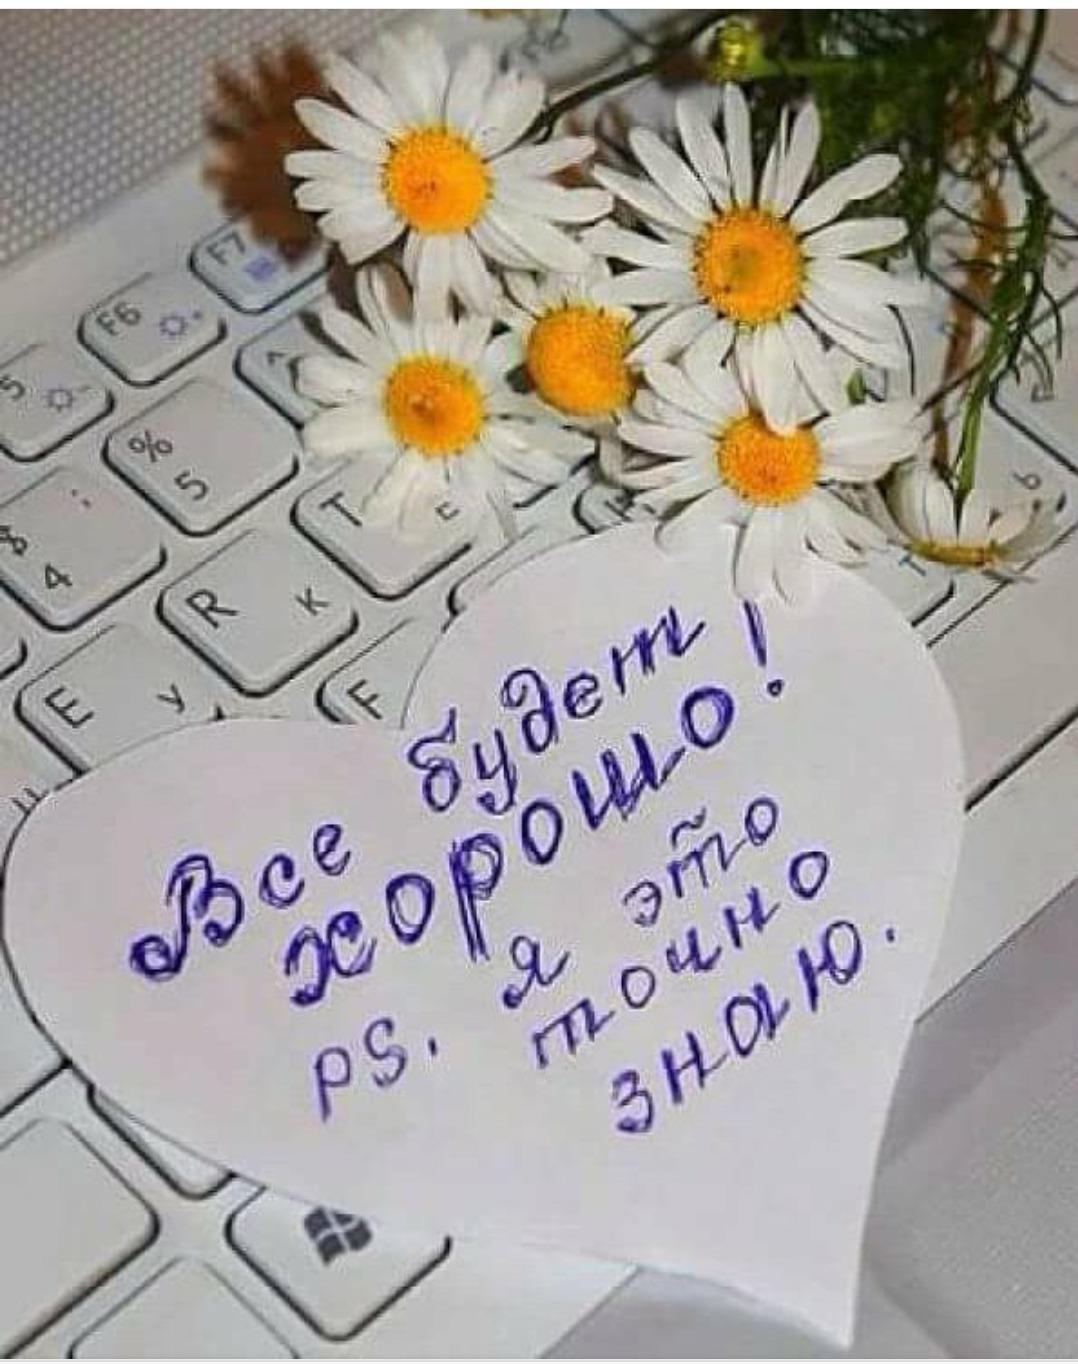 F7
F6
5
%
5
$ ;
4
T Е
R К
E У
F
Ь
Т
Все будет
хорошо!
PS. Я это
точно
знаю.